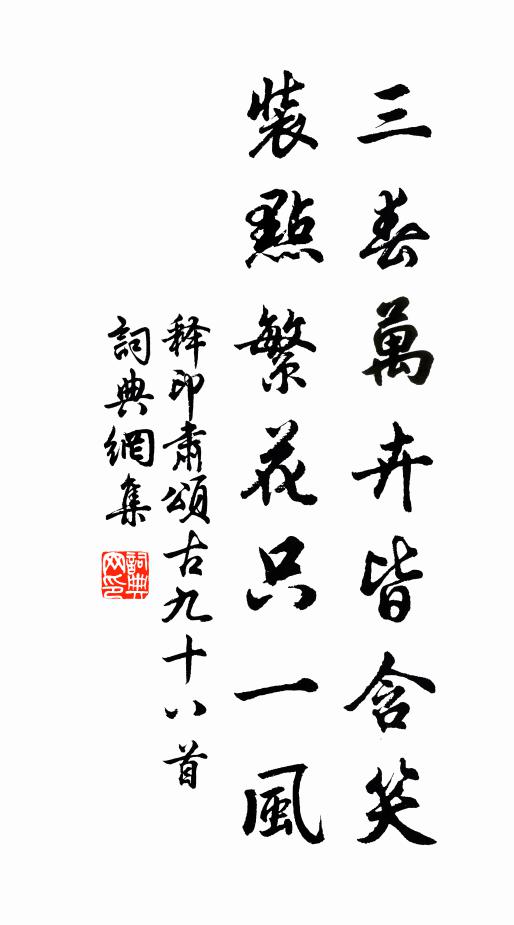 三春萬卉皆含笑
裝點繁花只一風
释印肅頌古九十八首
詞典網集
詞典网印